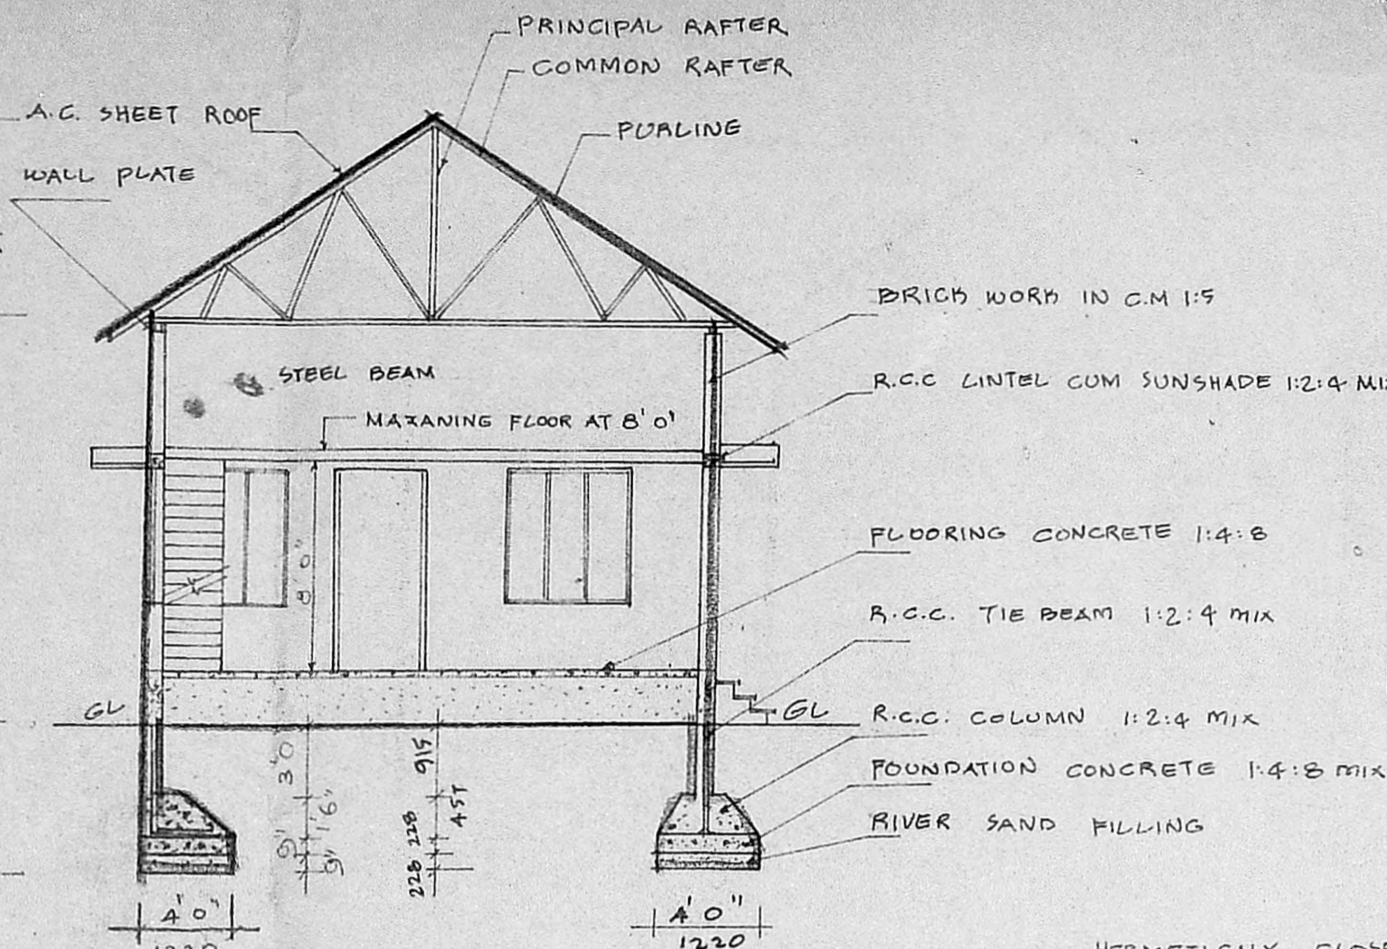 PRINCIPAL RAFTER
COMMON RAFTER
A.C. SHEET ROOF
PURLINE
WALL PLATE
BRICK WORK IN C.M 1:5
STEEL BEAM
R.C.C LINTEL CUM SUNSHADE 1:2:4
MAZANING FLOOR AT 8' 0'
FLOORING CONCRETE 1:4:8
8' 0"
R.C.C. TIE BEAM 1:2:4 MIX
GL
GL
R.C.C. COLUMN 1:2:4 MIX
3'0
915
FOUNDATION CONCRETE 1:4:8 MIX
1'6"
457
RIVER SAND FILLING
9'
228
9"
228
4' 0"
4' 0"
1220
1220